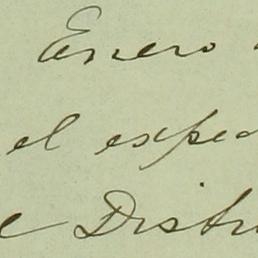 Enero
el exped
e Distri